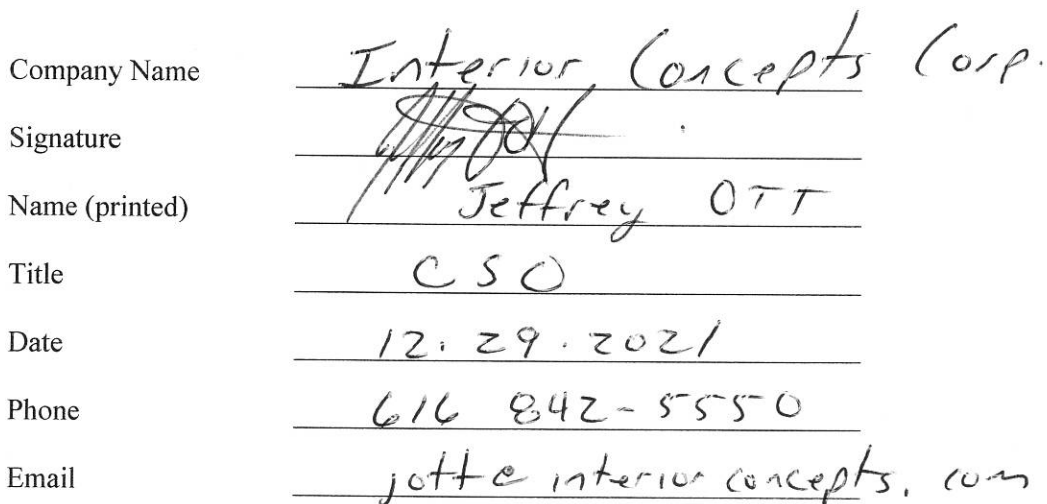 Company Name Interior Concepts Corp.
Signature
Name (printed) Jeffrey OTT
Title CSO
Date 12.29.2021
Phone 616 842-5550
Email jott@interiorconcepts.com